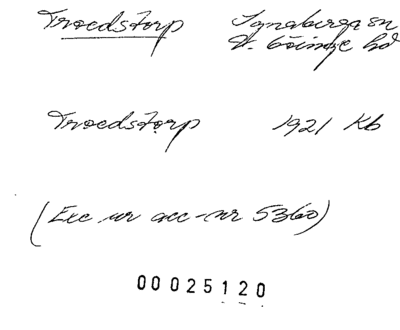 Troedstorp Ignaberga sn
V. Göinge hd
Troedstorp 1921 Kb
(Exc ur acc-nr 5360)
00025120